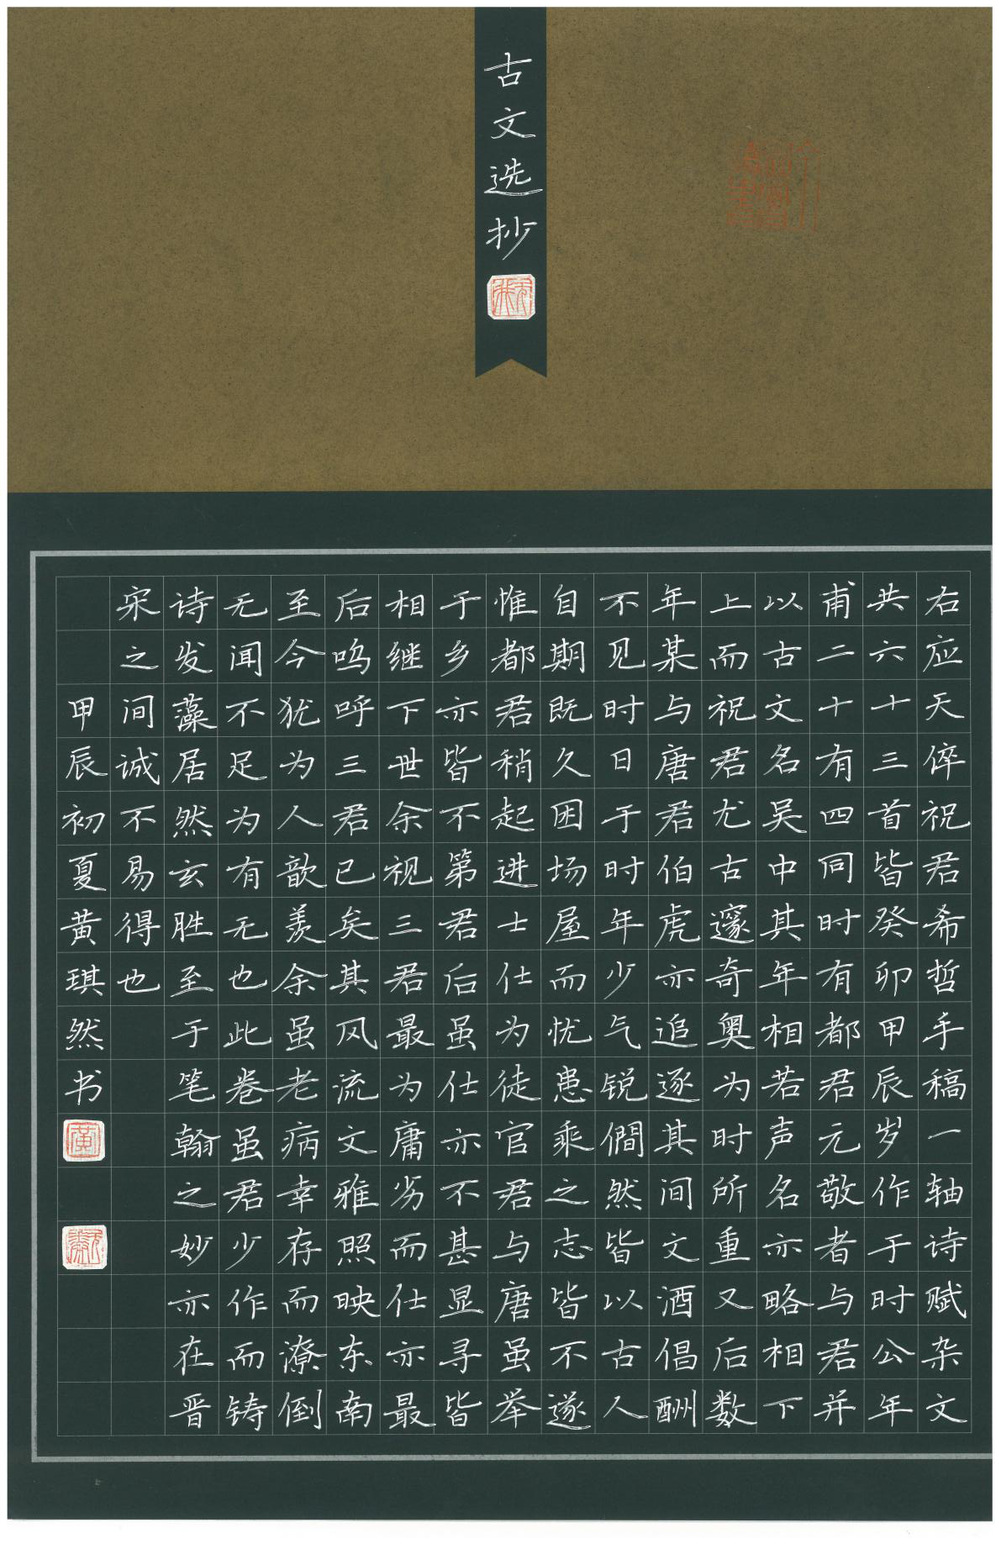 古文选抄
右应天倅祝君希哲手稿一轴诗赋杂文
共六十三首皆癸卯甲辰岁作于时公年
甫二十有四同时有都君元敬者与君并
以古文名吴中其年相若声名亦略相下
上而祝君尤古邃奇奥为时所重又后数
年某与唐君伯虎亦追逐其间文酒倡酬
不见时日于时年少气锐僴然皆以古人
自期既久困场屋而忧患乘之志皆不遂
惟都君稍起进士仕为徒官君与唐虽举
于乡亦皆不第君后虽仕亦不甚显寻皆
相继下世余视三君最为庸劣而仕亦最
后呜呼三君已矣其风流文雅照映东南
至今犹为人歆羡余虽老病幸存而潦倒
无闻不足为有无也此卷虽君少作而铸
诗发藻居然玄胜至于笔翰之妙亦在晋
宋之间诚不易得也
甲辰初夏黄琪然书
黄